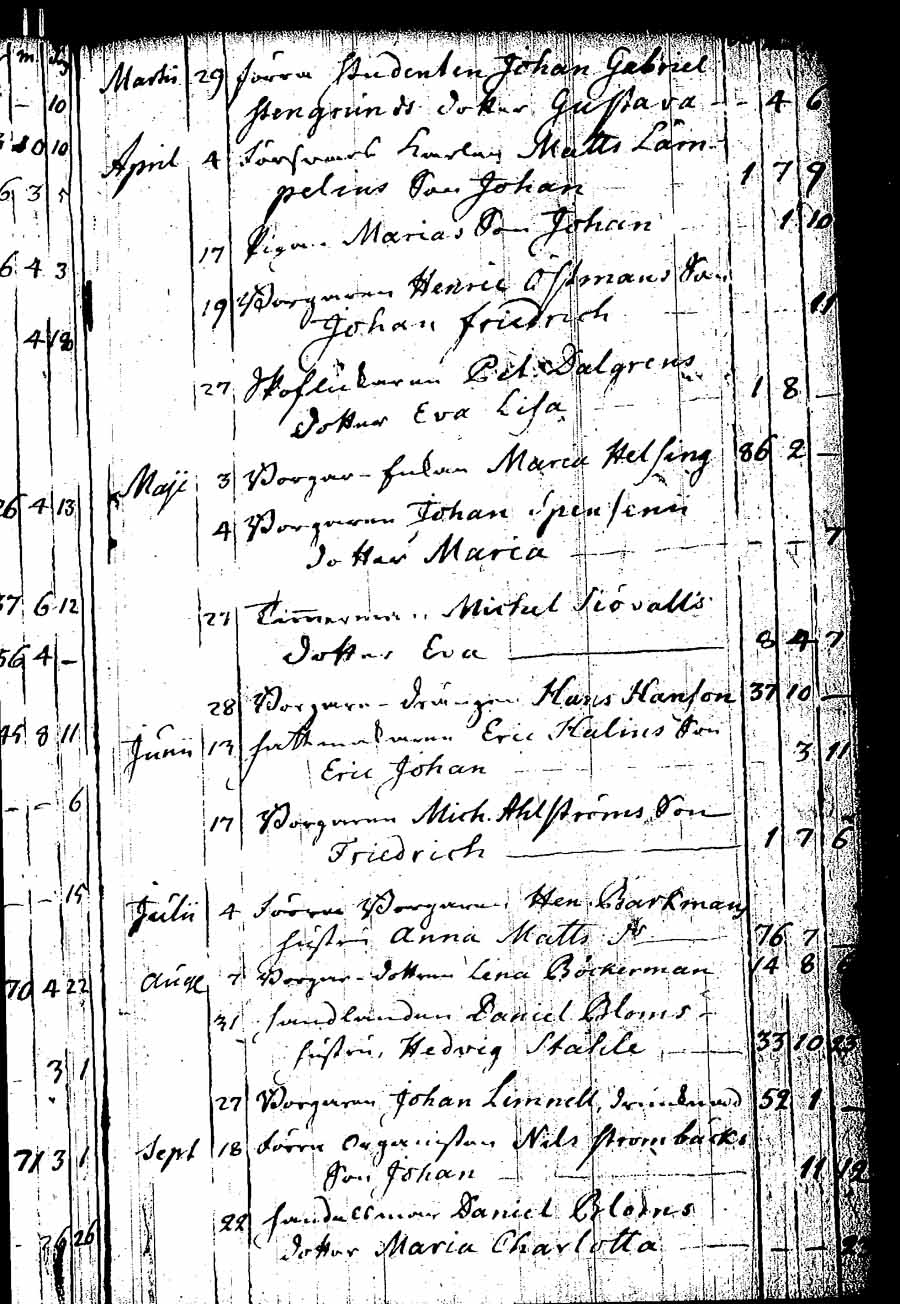 m dg
Martii 29 förra Studenten Johan Gabriel
- 10 Stengrunds dotter Gustava - - 4 6
0 10
April 4 Försvars Karlen Matts Läm-
6 3 5 pelius Son Johan 1 7 9
17 Pigan Marias Son Johan 1 10
6 4 3
19 Borgaren Henric Östmans Son
4 18 Johan Friedrich 11
27 Skoflickaren Pet. Dalgrens 1 8 -
dotter Eva Lisa
Maji 3 Borgar-Enkan Maria Helsing 86 2 -
26 4 13
4 Borgaren Johan Spensenii
dotter Maria - - 7
37 6 12
27 Timmerman Michel Siövalls
56 4 - dotter Eva 8 4 7
28 Borgare-drängen Hans Hanson 37 10 -
45 8 11
Junii 13 hattmakaren Eric Kalins Son
Eric Johan 3 11
- - 6
17 Borgaren Mich. Ahlströms Son
Friedrich 1 7 6
- - 15
Julii 4 förra Borgaren Hen. Barkmans
hustru Anna Matts dr 76 7 -
70 4 22 Aug 7 Borgar-dottren Lena Böckerman 14 8
31 handlanden Daniel Bloms
hustru, Hedvig Stahle 33 10 23
3 1
27 Borgaren Johan Limnell, drunknad 52 1 -
Sept 18 förra Organisten Nils Strombäcks
71 3 1 Son Johan 11 12
22 handelsman Daniel Bloms
26 26 dotter Maria Charlotta - - 22